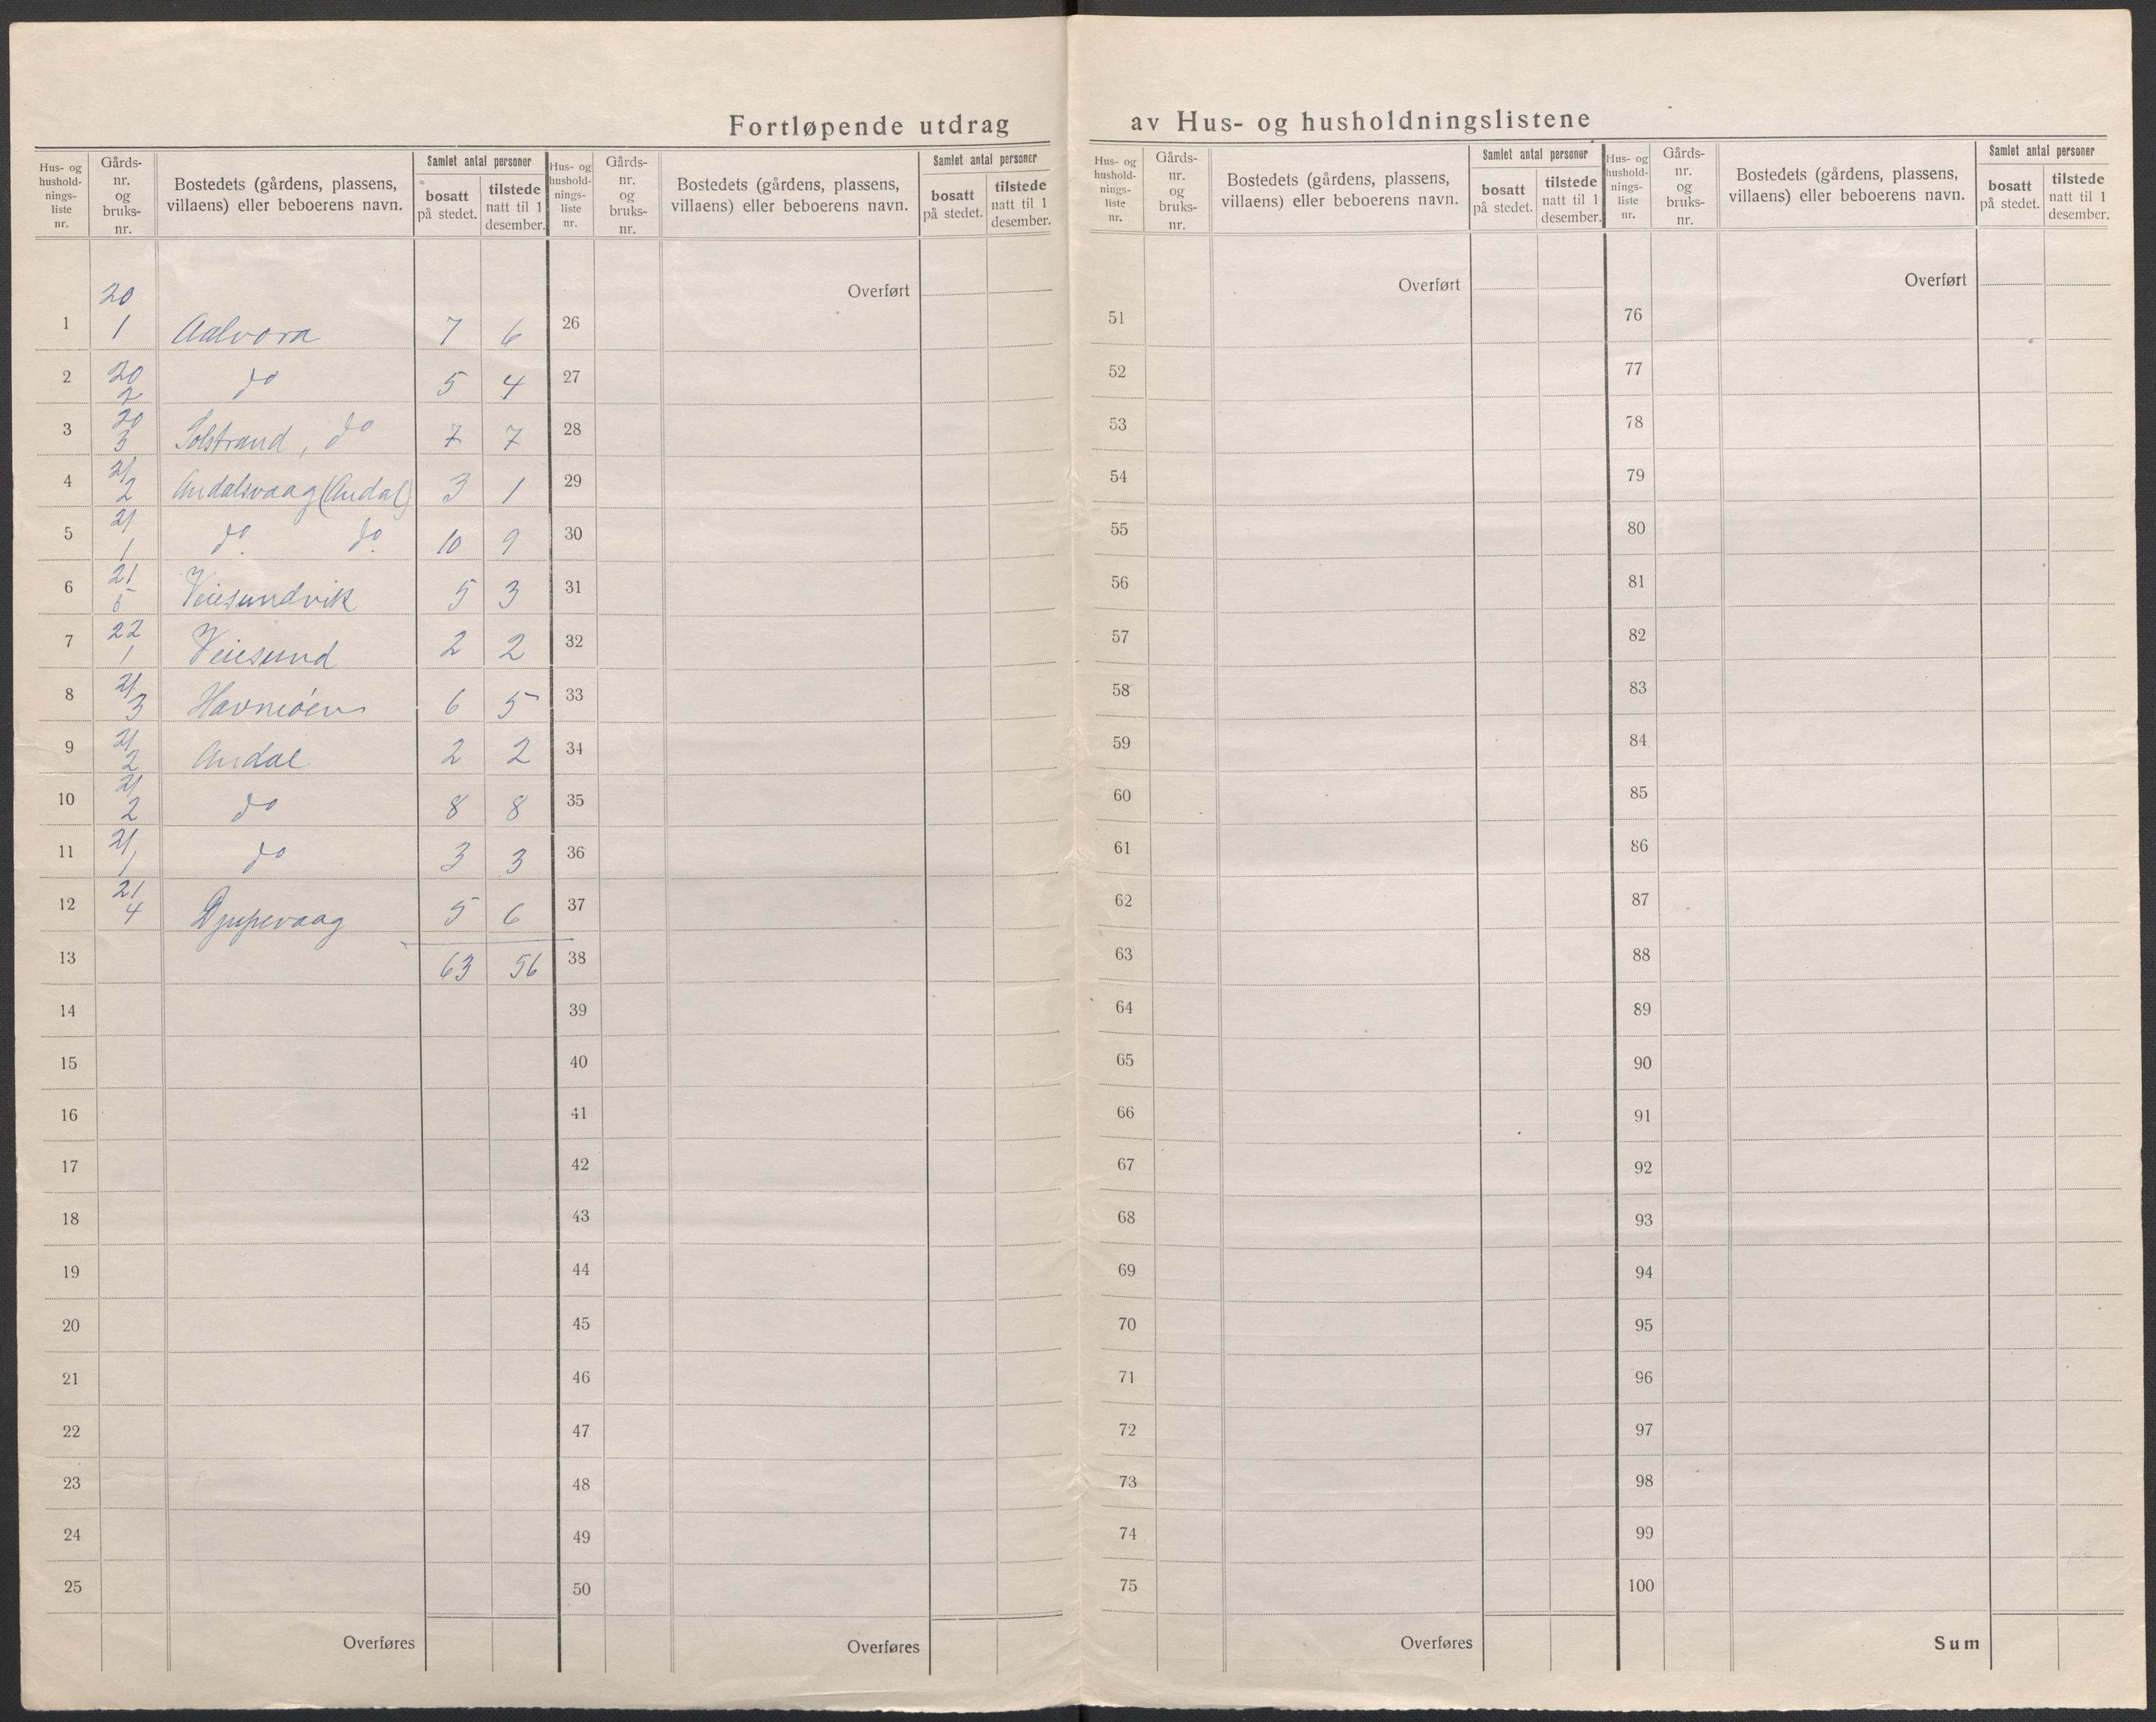 Fortløpende utdrag av Hus- og husholdningslistene
Hus- og husholdnings- liste nr. | Gårds- nr. og bruks- nr. | Bostedets (gårdens, plassens, villaens) eller beboerens navn. | Samlet antal personer | bosatt på stedet. | tilstede natt til 1 desember.
1 | 20 1 | Aalvora | 7 | 6
2 | 20 2 | do | 5 | 4
3 | 20 3 | Solstrand, do | 7 | 7
4 | 21 2 | Andalsvaag (Andal) | 3 | 1
5 | 21 1 | do. do. | 10 | 9
6 | 21 5 | Veiesundvik | 5 | 3
7 | 22 1 | Veiesund | 2 | 2
8 | 21 3 | Havnøen | 6 | 5
9 | 21 2 | Andal | 2 | 2
10 | 21 2 | do | 8 | 8
11 | 21 1 | do | 3 | 3
12 | 21 4 | Djupevaag | 5 | 6
13 | 63 | 56
14
15
16
17
18
19
20
21
22
23
24
25
Overføres
Hus- og husholdnings- liste nr. | Gårds- nr. og bruks- nr. | Bostedets (gårdens, plassens, villaens) eller beboerens navn. | Samlet antal personer | bosatt på stedet. | tilstede natt til 1 desember.
Overført
26
27
28
29
30
31
32
33
34
35
36
37
38
39
40
41
42
43
44
45
46
47
48
49
50
Overføres
Hus- og hushold- nings- liste nr. | Gårds- nr. og bruks- nr. | Bostedets (gårdens, plassens, villaens) eller beboerens navn. | Samlet antal personer | bosatt på stedet. | tilstede natt til 1 desember.
Overført
51
52
53
54
55
56
57
58
59
60
61
62
63
64
65
66
67
68
69
70
71
72
73
74
75
Overføres
Hus- og hushold- nings- liste nr. | Gårds- nr. og bruks- nr. | Bostedets (gårdens, plassens, villaens) eller beboerens navn. | Samlet antal personer | bosatt på stedet. | tilstede natt til 1 desember.
Overført
76
77
78
79
80
81
82
83
84
85
86
87
88
89
90
91
92
93
94
95
96
97
98
99
100
Sum